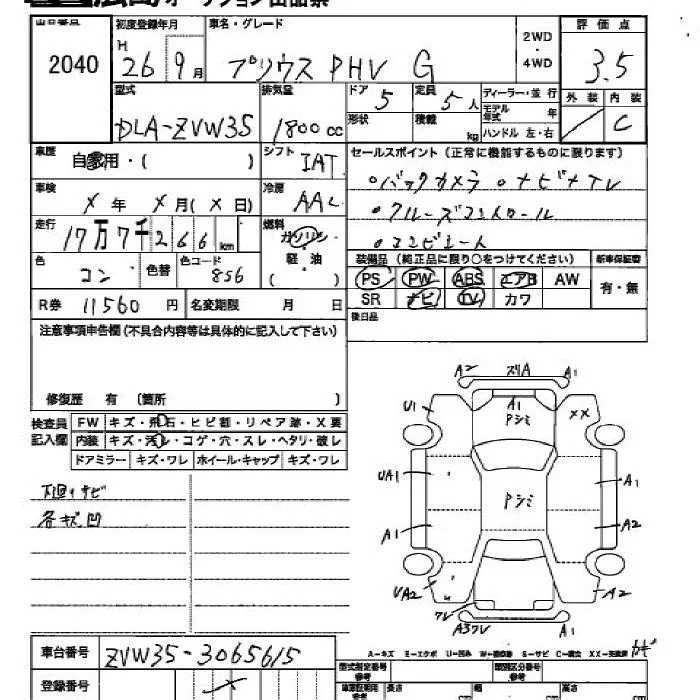 広島オークション出品票
出品番号 初度登録年月 車名・グレード 2WD・4WD 評価点
2040 H 26 9月 プリウス PHV G 3.5
型式 排気量 ドア 5 定員 5人 ディーラー・並行 外装 内装
DLA-ZVW35 1800cc 形状 積載 kg モデル年式 年 C
ハンドル 左・右
車歴 自家用・( ) シフト IAT セールスポイント(正常に機能するものに限ります)
車検 X年 X月(X日) 冷房 AAC 。バックカメラ 。ナビ+TV
走行 17万7千266km 燃料 ガソリン 。クルーズコントロール
軽油 ( )
色 コン 色替 色コード 8S6 装備品(純正品に限り○をつけてください) 新車保証書
PS PW ABS エアB AW 有・無
R券 11560円 名変期限 月 日 SR ナビ TV カワ
注意事項申告欄(不具合内容等は具体的に記入して下さい) 後日品
修復歴 有 〔箇所 〕
検査員記入欄 FW キズ・飛石・ヒビ割・リペア跡・X要
内装 キズ・汚レ・コゲ・穴・スレ・ヘタリ・破レ
ドアミラー キズ・ワレ ホイール・キャップ キズ・ワレ
下廻りサビ
各キズ凹
A2 ズリA A1
U1 A1 Pシミ XX
UA1 Pシミ A1
A1 A2
UA2 A2
ワレ
A3ワレ A1
A=キズ E=エクボ U=凹み S=サビ C=腐食
車台番号 ZVW35-3065615
型式指定番号 参考 類別区分番号 参考
登録番号 長さ cm 幅 cm 高さ cm